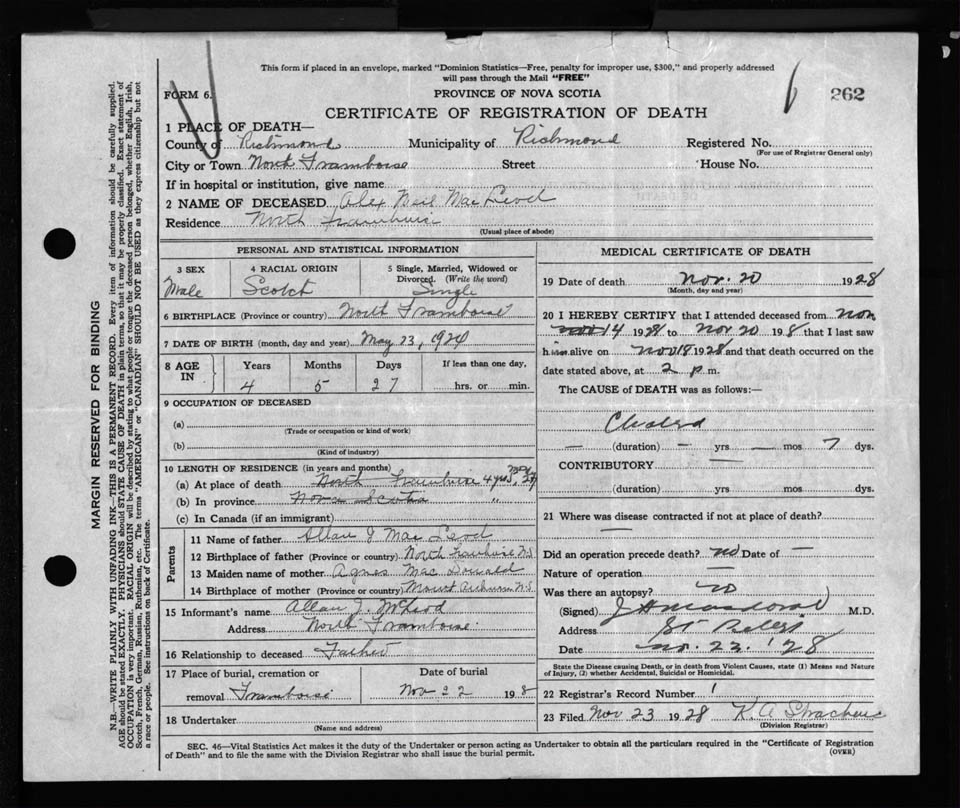 This form if placed in an envelope, marked "Dominion Statistics—Free, penalty for improper use, $300," and properly addressed
will pass through the Mail "FREE"
FORM 6.
PROVINCE OF NOVA SCOTIA
262
CERTIFICATE OF REGISTRATION OF DEATH
1 PLACE OF DEATH—
County of Richmond Municipality of Richmond Registered No.
(For use of Registrar General only)
City or Town North Framboise Street House No.
If in hospital or institution, give name
2 NAME OF DECEASED Alex Neil MacLeod
Residence North Framboise
(Usual place of abode)
PERSONAL AND STATISTICAL INFORMATION
3 SEX
Male
4 RACIAL ORIGIN
Scotch
5 Single, Married, Widowed or
Divorced. (Write the word)
Single
6 BIRTHPLACE (Province or country) North Framboise
7 DATE OF BIRTH (month, day and year) May 23, 1924
8 AGE IN
Years Months Days If less than one day,
4 5 27 hrs. or min.
9 OCCUPATION OF DECEASED
(a)
(Trade or occupation or kind of work)
(b)
(Kind of industry)
10 LENGTH OF RESIDENCE (in years and months)
(a) At place of death North Framboise 4 yrs,
(b) In province Nova Scotia "
(c) In Canada (if an immigrant)
Parents
11 Name of father Allan J MacLeod
12 Birthplace of father (Province or country) North Framboise N.S
13 Maiden name of mother Agnes MacDonald
14 Birthplace of mother (Province or country) Mount Auburn N.S
15 Informant's name Allan J. McLeod
Address North Framboise
16 Relationship to deceased Father
17 Place of burial, cremation or
removal Framboise
Date of burial
Nov 22 1928
18 Undertaker
(Name and address)
MEDICAL CERTIFICATE OF DEATH
19 Date of death Nov. 20 1928
(Month, day and year)
20 I HEREBY CERTIFY that I attended deceased from Nov
14 1928 to Nov 20 1928 that I last saw
him alive on Nov 18 1928 and that death occurred on the
date stated above, at 2 p m.
The CAUSE of DEATH was as follows:—
Cholera
— (duration) — yrs — mos 7 dys.
CONTRIBUTORY —
(duration) yrs. mos. dys.
21 Where was disease contracted if not at place of death?
—
Did an operation precede death? no Date of —
Nature of operation —
Was there an autopsy? no
(Signed) M.D.
Address St Peters
Date Nov. 23. '28
State the Disease causing Death, or in death from Violent Causes, state (1) Means and Nature
of Injury, (2) whether Accidental, Suicidal or Homicidal.
22 Registrar's Record Number 1
23 Filed Nov 23 1928 K. A Strachan
(Division Registrar)
SEC. 46—Vital Statistics Act makes it the duty of the Undertaker or person acting as Undertaker to obtain all the particulars required in the "Certificate of Registration
of Death" and to file the same with the Division Registrar who shall issue the burial permit.
(OVER)
MARGIN RESERVED FOR BINDING
N.B.—WRITE PLAINLY WITH UNFADING INK—THIS IS A PERMANENT RECORD. Every item of information should be carefully supplied.
AGE should be stated EXACTLY. PHYSICIANS should STATE CAUSE OF DEATH in plain terms, so that it may be properly classified. Exact statement of
OCCUPATION is very important. RACIAL ORIGIN will be described by stating to what people or tongue the deceased person belonged, whether English, Irish,
Scotch, French, German, Russian, Ruthenian, etc. The terms "AMERICAN" or "CANADIAN" SHOULD NOT BE USED as they express citizenship but not
a race or people. See instructions on back of Certificate.